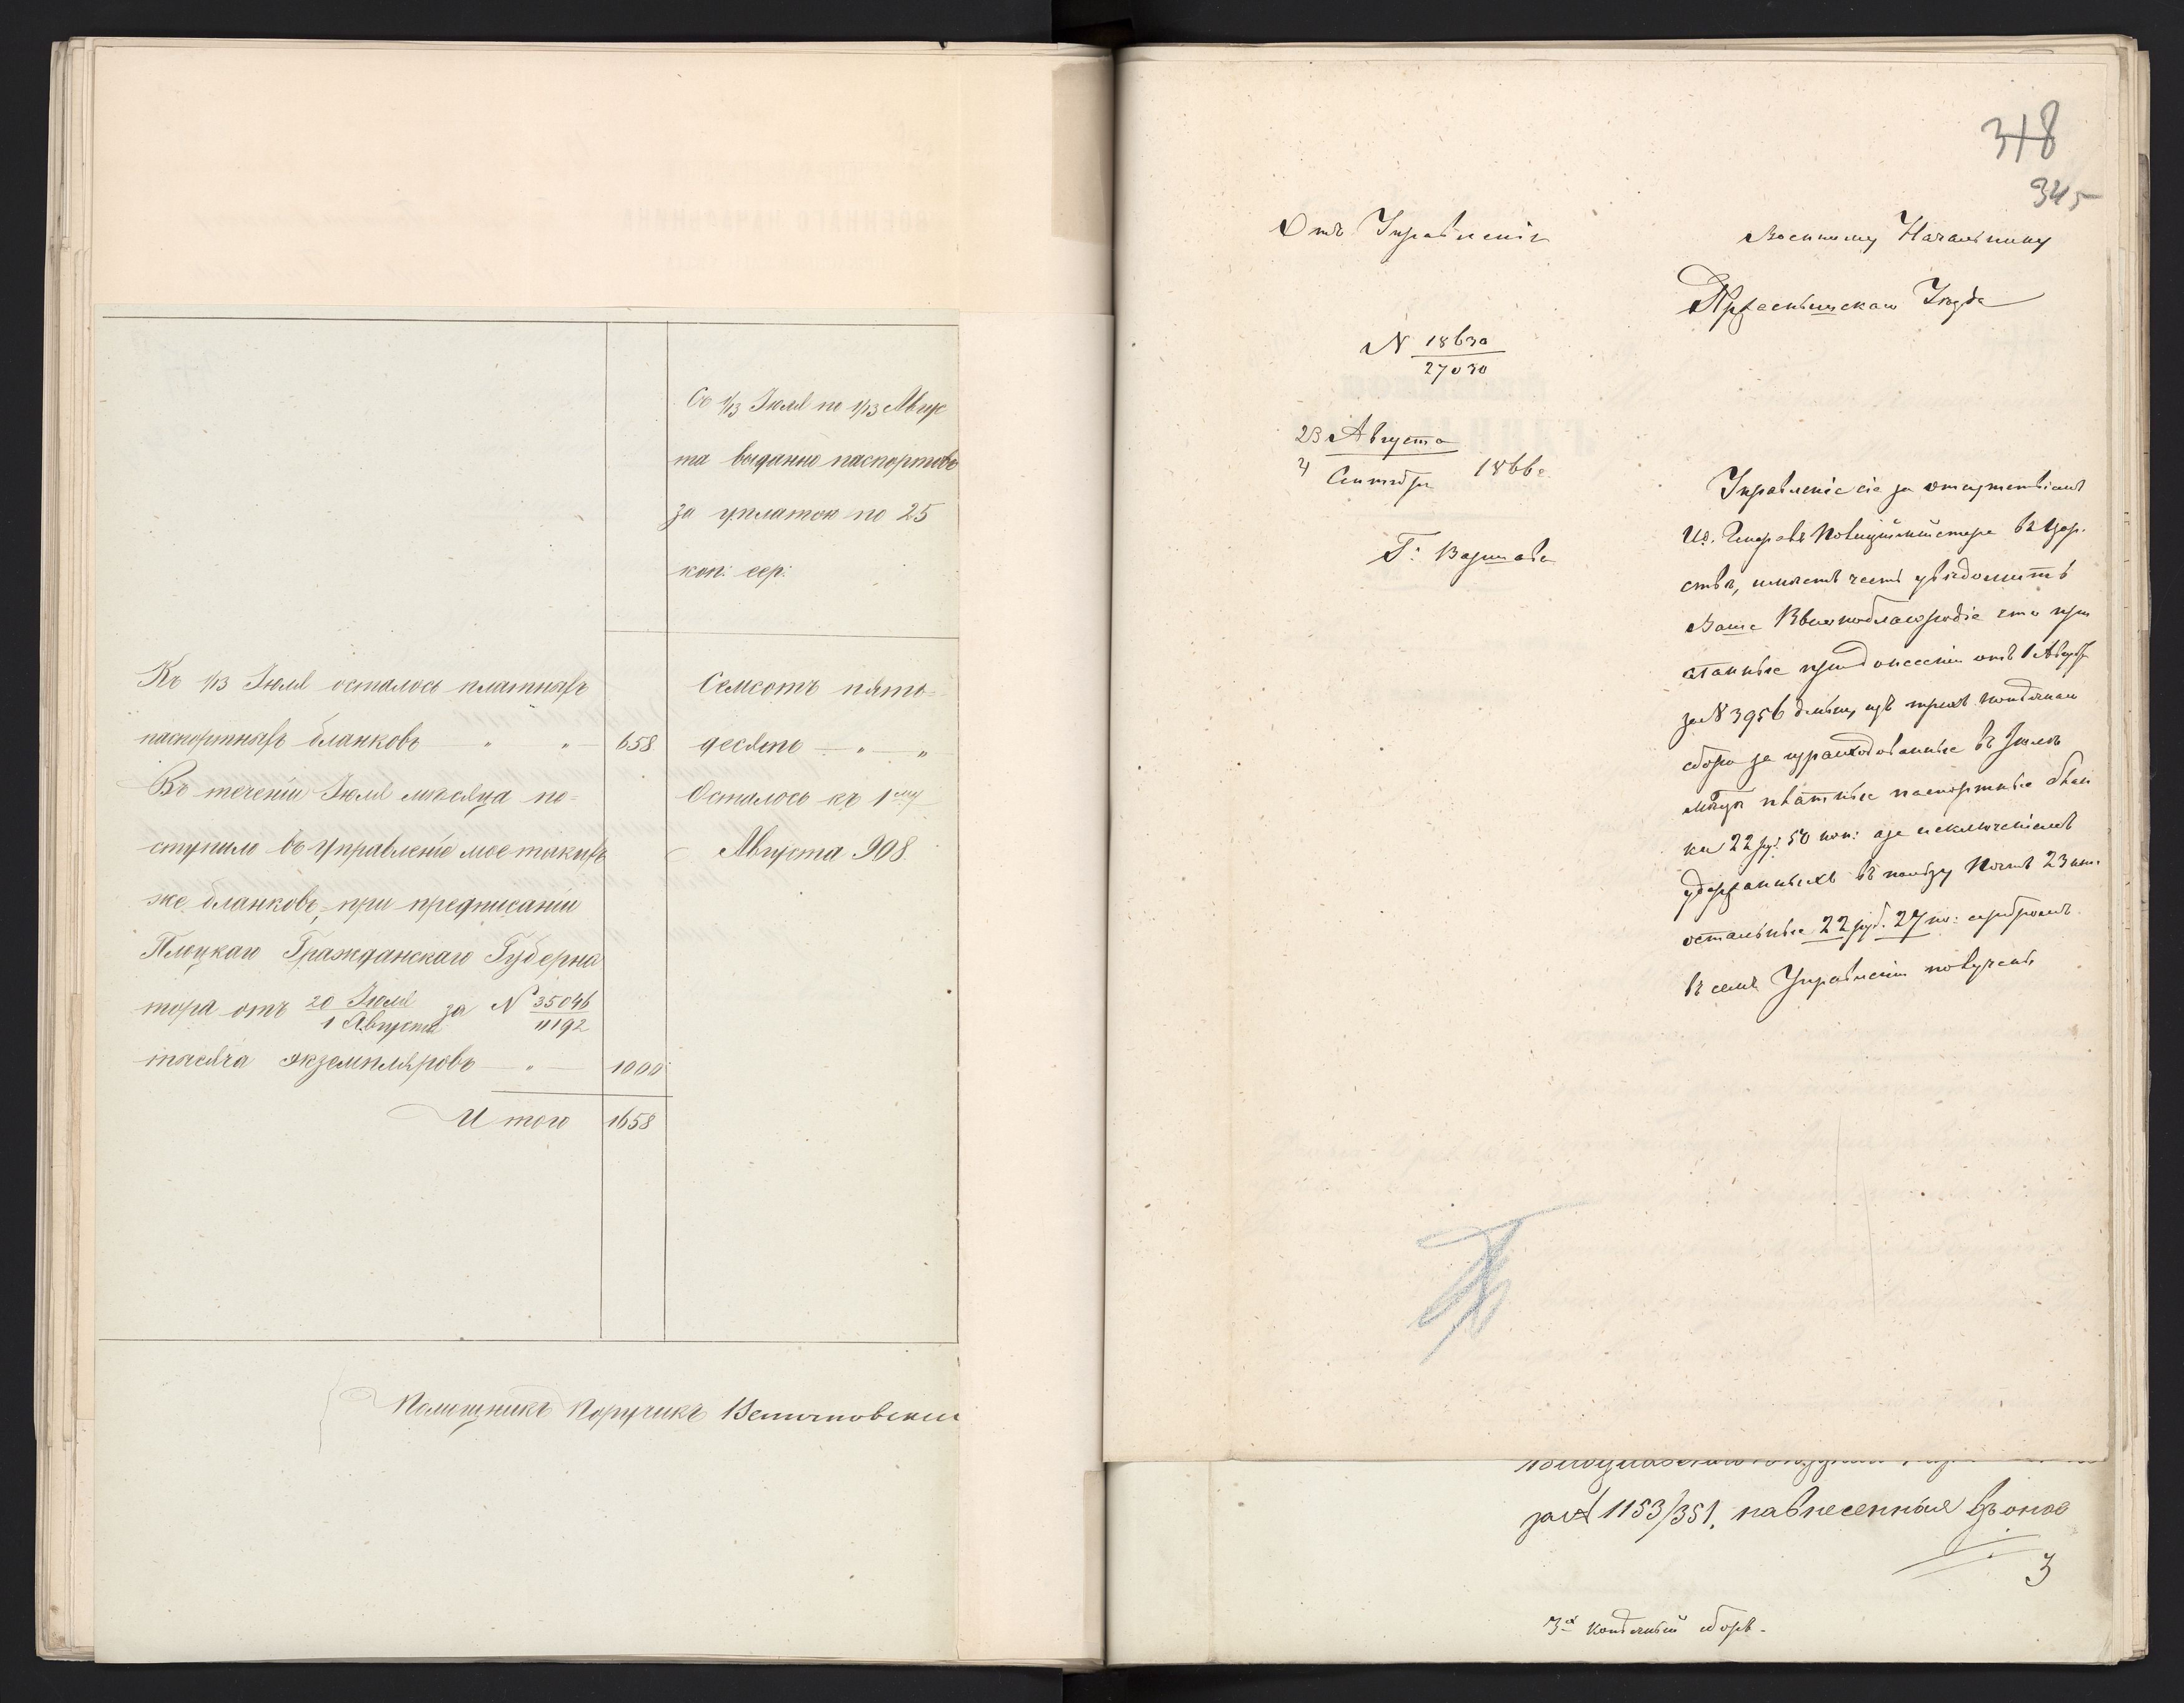 Съ 1/13 Іюля по 1/13 Авгус
та выданно паспортовъ
за уплатою по 25
коп: сер:
Къ 1/13 Іюля осталось платныхъ
паспортныхъ бланковъ — " " — 658
Въ теченіи Іюля мѣсяца по=
ступило въ управленіе мое такихъ
же бланковъ, при предписаніи
Плоцкаго Гражданскаго Губерна
тора отъ 20 Іюля / 1 Августа за № 35046 / 11192
тысяча экземпляровъ — " — 1000
Итого 1658
Семсотъ пять=
десять — " — "
Осталось къ 1му
Августа 908.
Помощникъ Поручикъ
318
345
Отъ Управленія
№ 18630 / 27030
23 Августа
4 Сентября 1866 г.
Г. Варшава
Военному Начальнику
Праснышскаго Уѣзда
Управленіе сіе за отсутствіемъ
Ге. Генералъ Полиціймейстера въ Цар.
ствѣ, имѣетъ честь увѣдомить
Ваше Высокоблагородіе что при
сланные при донесеніи отъ 1 Августа
за № 3956 деньги, изъ трехъ копѣечнаго
сбора за израсходованные въ Іюлѣ
мѣсяцѣ платные паспортные блан
ки 22 руб. 50 коп: а за исключеніемъ
удержанныхъ въ пользу Почтъ 23 коп.
остальные 22 руб. 27 ко: серебромъ
въ семъ Управленіи получены
за № 1153/351, на внесенныя въ оное
3
3х копѣечный сборъ.